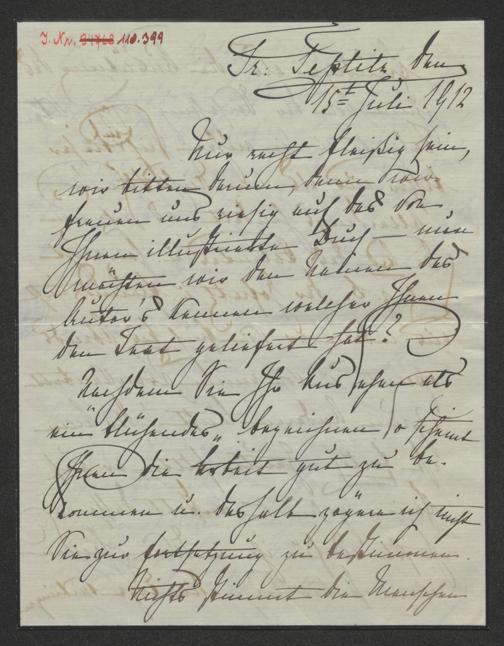 J. Nr. 94768 110.399
Tr. Teplitz den
15ten Juli 1912
Nur recht fleißig sein,
wir bitten darum, denn wir
freuen uns riesig auf das von
Ihnen illustrirte Buch nun
möchten wir den Namen des
Autor's kennen welcher Ihnen
den Text geliefert hat?
Nachdem Sie Ihr Aussehen als
ein "blühendes" bezeichnen so scheint
Ihnen die Arbeit gut zu be-
kommen u. deshalb zögere ich nicht
Sie zur Fortsetzung zu bestimmen.
Nichts stimmt die Menschen